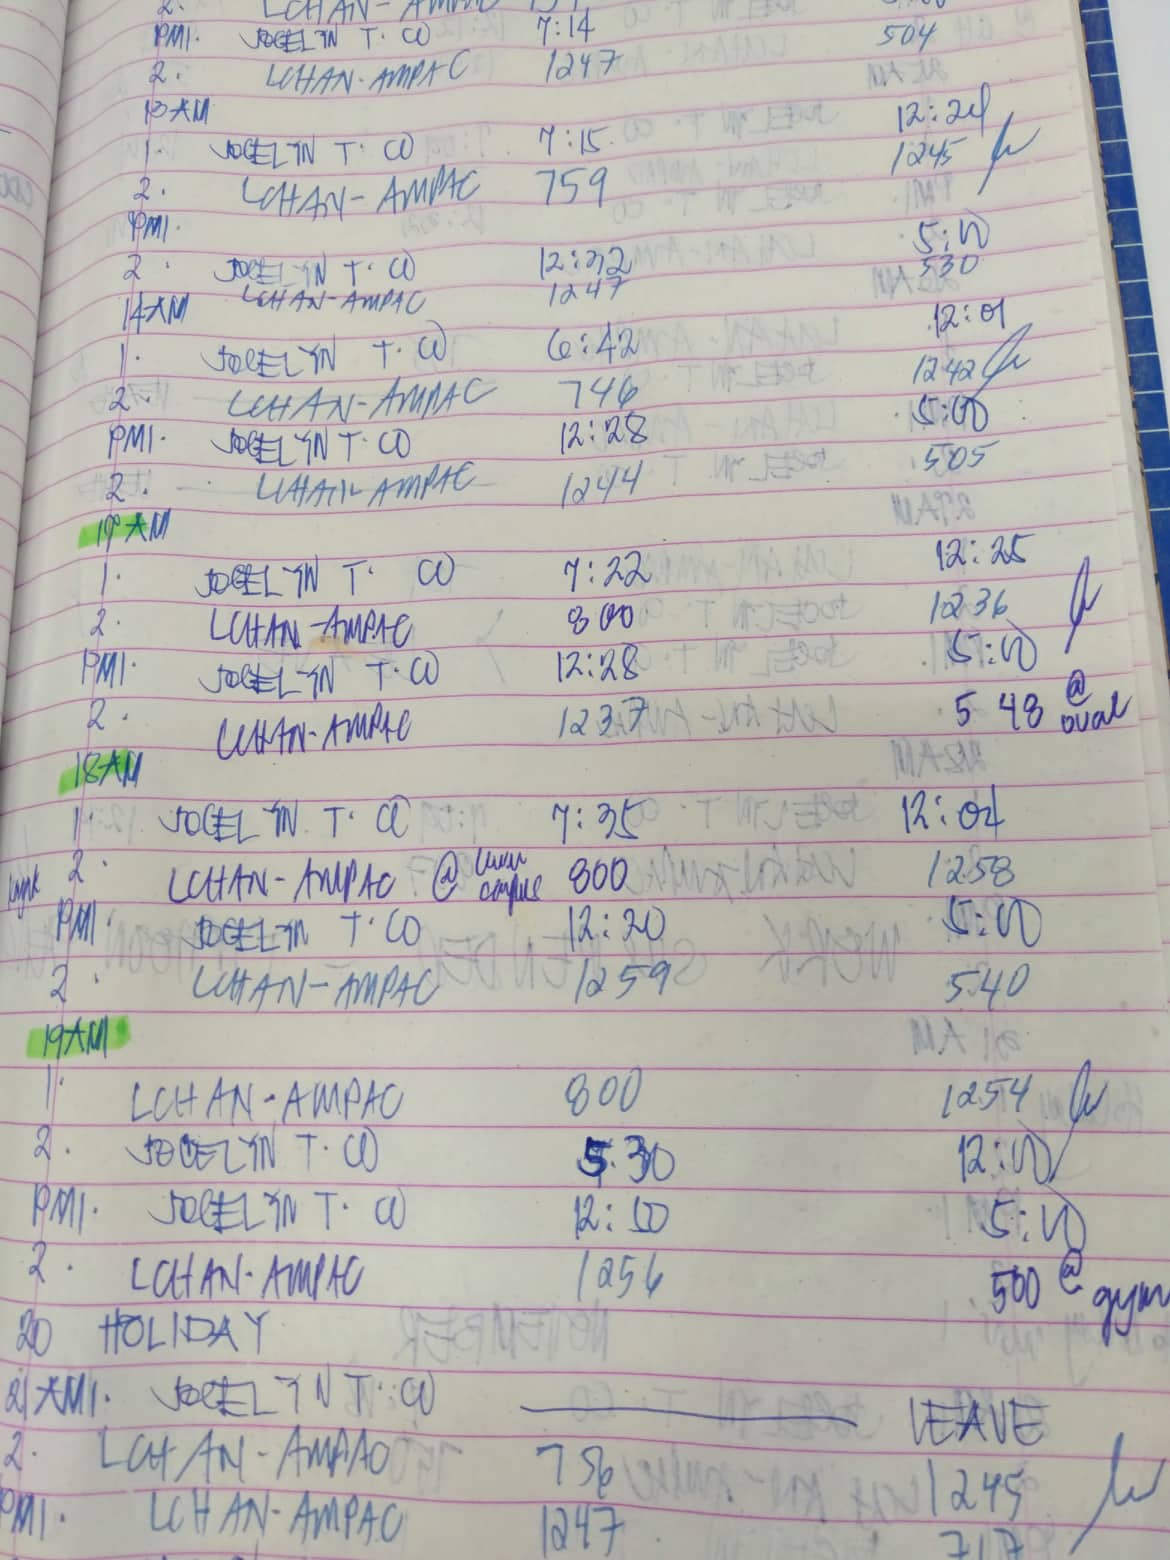 2. LCHAN-AMPAC
PM1. JOCELYN T. CO 7:14 504
2. LCHAN-AMPAC 1247
13AM
1. JOCELYN T. CO 7:15 12:24
2. LCHAN-AMPAC 759 1245
PM1.
JOCELYN T. CO 12:32 5:00
2. LCHAN-AMPAC 1247 530
14AM
1. JOCELYN T. CO 6:42 12:01
2. LCHAN-AMPAC 746 1242
PM1. JOCELYN T. CO 12:28 5:00
2. LCHAN-AMPAC 1244 505
AM
1. JOCELYN T. CO 7:22 12:25
2. LCHAN-AMPAC 800 1236
PM1. JOCELYN T. CO 12:28 5:00
2. LCHAN-AMPAC 1237 5 48 @ oval
18AM
1. JOCELYN T. CO 7:35 12:04
2. LCHAN-AMPAC @ campus 800 1258
PM1. JOCELYN T. CO 12:20 5:00
2. LCHAN-AMPAC 1259 540
19AM
1. LCHAN-AMPAC 800 1254
2. JOCELYN T. CO 5:30 12:00
PM1. JOCELYN T. CO 12:50 5:00
2. LCHAN-AMPAC 1256 500 @ gym
20 HOLIDAY
21 AM1. JOCELYN T. CO LEAVE
2. LCHAN-AMPAC 756 1245
PM1. LCHAN-AMPAC 1247 717